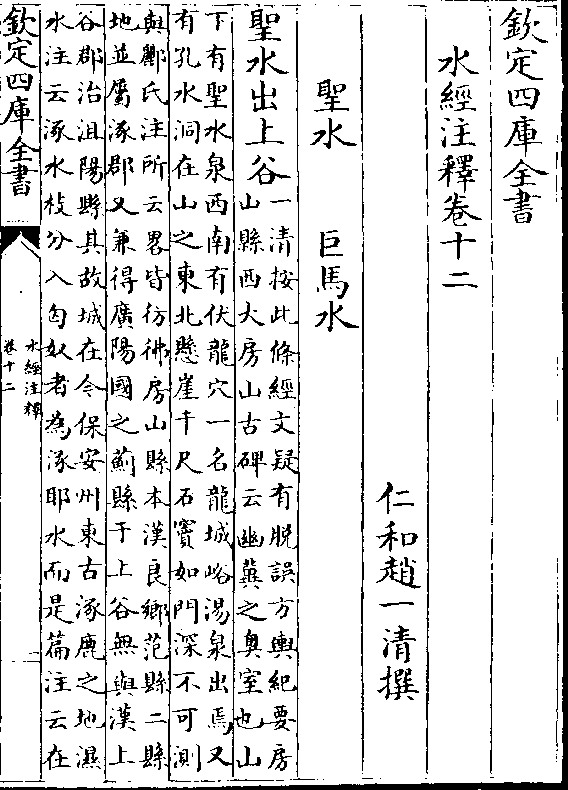 欽定四庫全書
水經注釋卷十二
仁和趙一清撰
聖水　巨馬水
聖水出上谷
一清按此條經文疑有脫誤方輿紀要房
山縣西大房山古碑云幽冀之奧室也山
下有聖水泉西南有伏龍穴一名龍城峪湯泉出焉又
有孔水洞在山之東北懸崖千尺石竇如門深不可測
與酈氏注所云畧皆彷彿房山縣本漢良鄉范縣二縣
地並屬涿郡又兼得廣陽國之薊縣于上谷無與漢上
谷郡治沮陽縣其故城在今保安州東古涿鹿之地濕
水注云涿水枝分入匈奴者為涿耶水而是篇注云在
欽定四庫全書
水經注釋
卷十二